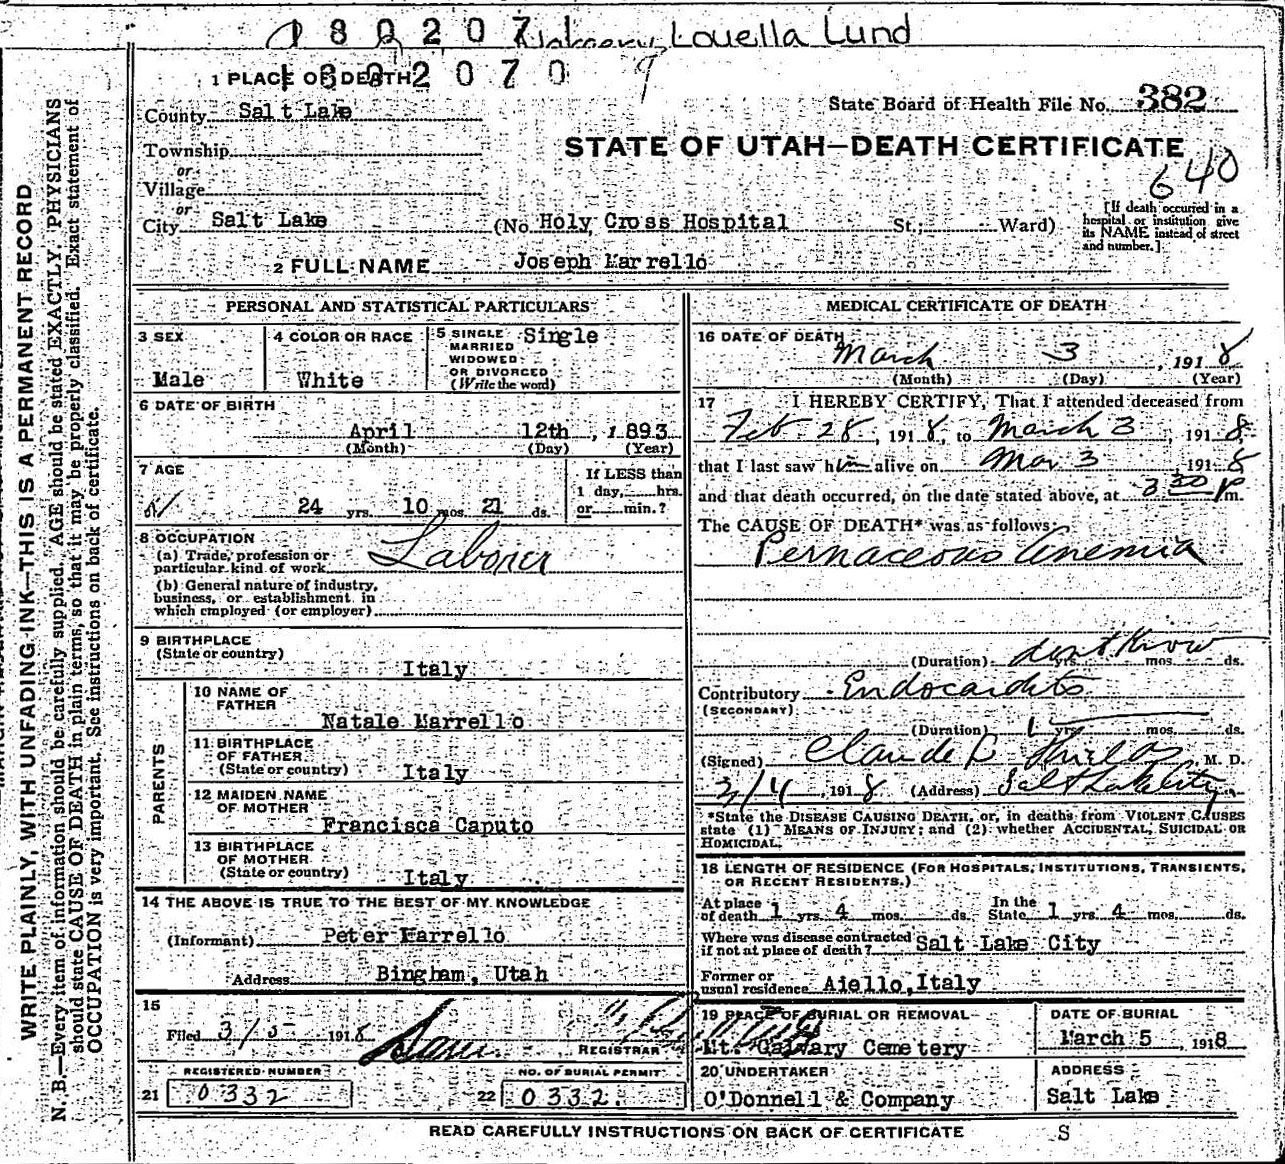 180207 Louella Lund
1802070
1 PLACE OF DEATH
State Board of Health File No. 382
County Salt Lake
STATE OF UTAH—DEATH CERTIFICATE
Township
640
or
Village
or
City Salt Lake (No. Holy Cross Hospital St.; Ward)
[If death occurred in a
hospital or institution give
its NAME instead of street
and number.]
2 FULL NAME Joseph Marrello
PERSONAL AND STATISTICAL PARTICULARS
3 SEX
Male
4 COLOR OR RACE
White
5 SINGLE Single
MARRIED
WIDOWED
OR DIVORCED
(Write the word)
6 DATE OF BIRTH
April 12th, 1893
(Month) (Day) (Year)
7 AGE
24 yrs. 10 mos. 21 ds.
If LESS than
1 day, hrs.
or min.?
8 OCCUPATION
(a) Trade, profession or
particular kind of work Laborer
(b) General nature of industry,
business, or establishment in
which employed (or employer)
9 BIRTHPLACE
(State or country)
Italy
PARENTS
10 NAME OF
FATHER
Natale Marrello
11 BIRTHPLACE
OF FATHER
(State or country) Italy
12 MAIDEN NAME
OF MOTHER
Francisca Caputo
13 BIRTHPLACE
OF MOTHER
(State or country) Italy
14 THE ABOVE IS TRUE TO THE BEST OF MY KNOWLEDGE
(Informant) Peter Marrello
Address Bingham, Utah
15
Filed 3/5 1918
REGISTRAR
REGISTERED NUMBER
21 0332
NO. OF BURIAL PERMIT
22 0332
MEDICAL CERTIFICATE OF DEATH
16 DATE OF DEATH
March 3, 1918
(Month) (Day) (Year)
17 I HEREBY CERTIFY, That I attended deceased from
Feb 28, 1918, to March 3, 1918
that I last saw him alive on Mar 3 1918
and that death occurred, on the date stated above, at 3 30 P m.
The CAUSE OF DEATH* was as follows:
Pernaceous Anemia
(Duration) dont Know yrs. mos. ds.
Contributory Endocardits
(SECONDARY)
(Duration) 1 yrs. mos. ds.
(Signed) Claude Shields, M. D.
3/4, 1918 (Address) Salt Lake City
*State the DISEASE CAUSING DEATH, or, in deaths from VIOLENT CAUSES
state (1) MEANS OF INJURY; and (2) whether ACCIDENTAL, SUICIDAL OR
HOMICIDAL.
18 LENGTH OF RESIDENCE (FOR HOSPITALS, INSTITUTIONS, TRANSIENTS,
OR RECENT RESIDENTS.)
At place
of death 1 yrs. 4 mos. ds.
In the
State 1 yrs. 4 mos. ds.
Where was disease contracted
if not at place of death? Salt Lake City
Former or
usual residence Aiello, Italy
19 PLACE OF BURIAL OR REMOVAL
Mt. Calvary Cemetery
DATE OF BURIAL
March 5, 1918
20 UNDERTAKER
O'Donnell & Company
ADDRESS
Salt Lake
READ CAREFULLY INSTRUCTIONS ON BACK OF CERTIFICATE S
WRITE PLAINLY, WITH UNFADING INK—THIS IS A PERMANENT RECORD
N. B.—Every item of information should be carefully supplied. AGE should be stated EXACTLY. PHYSICIANS
should state CAUSE OF DEATH in plain terms, so that it may be properly classified. Exact statement of
OCCUPATION is very important. See instructions on back of certificate.